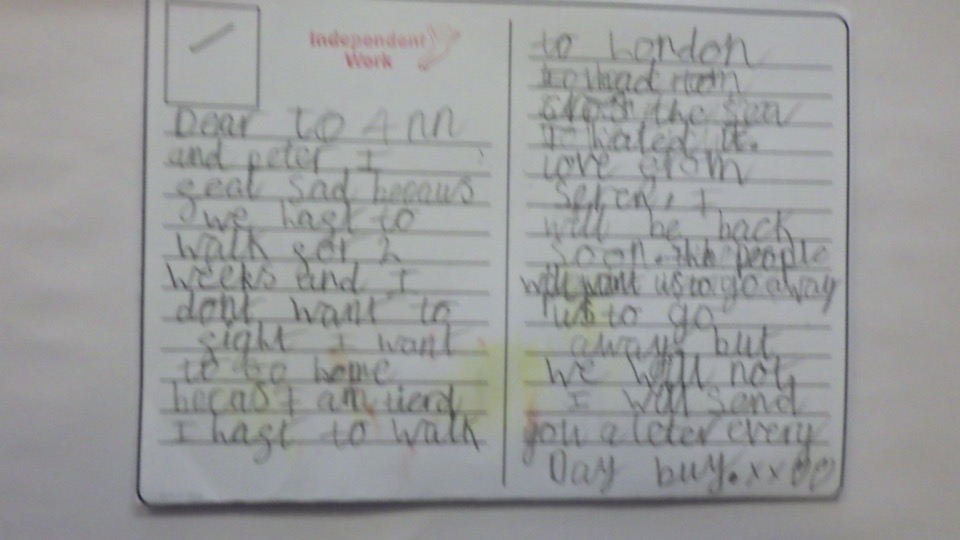 Independent
Work
Dear to Ann
and peter I
geal sad becaus
we hast to
walk gor 2
weeks and I
dont want to
gight I want
to go home
becas I am tierd
I hast to walk
to London
the sea
I hated it.
love grom
I
will be back
soon. the people
will want us to go away
us to go
away but
we will not,
I will send
you a leter every
Day buy.xx